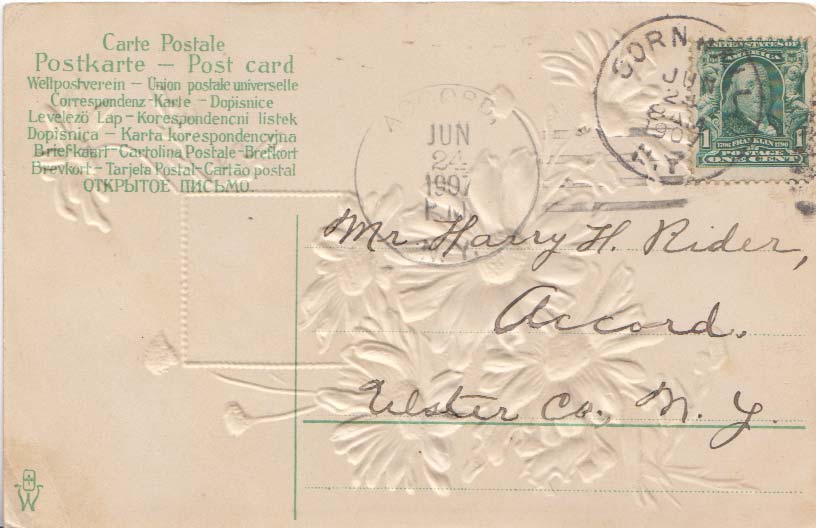 Carte Postale
Postkarte — Post card
Weltpostverein – Union postale universelle
Correspondenz-Karte – Dopisnice
Levelező Lap – Korespondencni listek
Dopisnica – Karta korespondencyjna
Briefkaart – Cartolina Postale – Brefkort
Brevkort – Tarjeta Postal – Cartão postal
ОТКРЫТОЕ ПИСЬМО.
ACCORD,
JUN
24
1907
N.Y.
CORN
JUN
24
190
N.Y.
UNITED STATES OF AMERICA
1 1
1706 FRANKLIN 1790
POSTAGE
ONE CENT
Mr. Harry H. Rider,
Accord.
Ulster Co., N. Y.
W